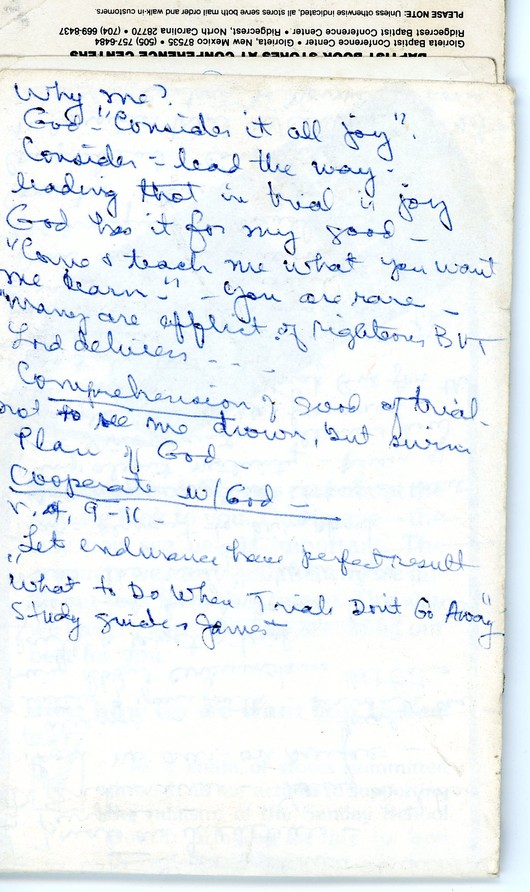 PLEASE NOTE: Unless otherwise indicated, all stores serve both mail order and walk-in customers.
Ridgecrest Baptist Conference Center • Ridgecrest, North Carolina 28770 • (704) 669-8437
Glorieta Baptist Conference Center • Glorieta, New Mexico 87535 • (505) 757-6484
BAPTIST BOOK STORES AT CONFERENCE CENTERS
Why me?
God - "Consider it all joy".
Consider - lead the way -
leading that in trial is joy
God has it for my good -
"Come & teach me what you want
me learn." - you are rare -
"Many are afflict. of righteous BUT
Lord delivers - - -
Comprehension of good of trial -
not to see me drown, but swim
Plan of God -
Cooperate w/God -
v. 4, 9-11 -
"Let endurance have perfect result
"What to Do When Trials Don't Go Away"
Study guides James -